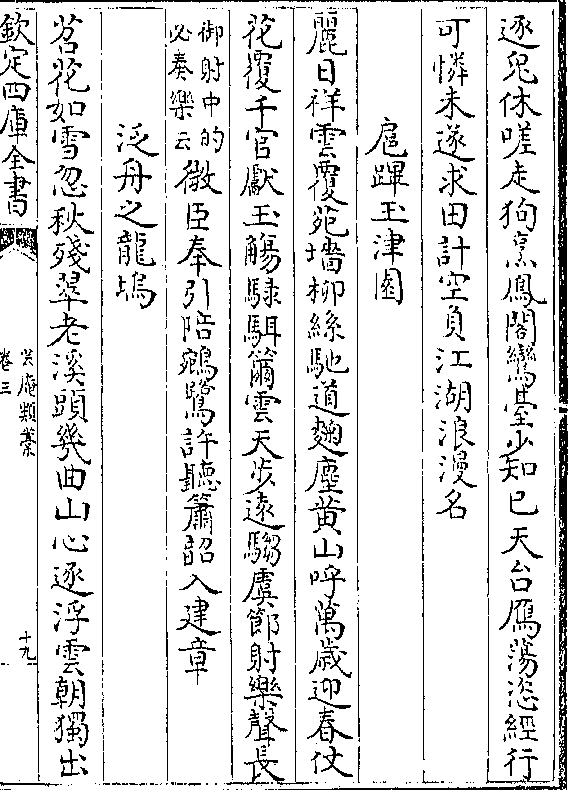 逐兎休嗟走狗烹鳳閣鸞臺少知已天台鴈蕩恣經行
可憐未遂求田計空負江湖浪漫名
扈蹕玉津園
麗日祥雲覆苑墻柳絲馳道麹塵黄山呼萬歲迎春仗
花覆千官獻玉觴騄駬籋雲天步逺騶虞節射樂聲長
御射中的
必奏樂云
微臣奉引陪鵷鷺許聽簫韶入建章
泛舟之龍塢
苕花如雪忽秋殘翠老溪頭幾曲山心逐浮雲朝獨出
欽定四庫全書
卷三
十九